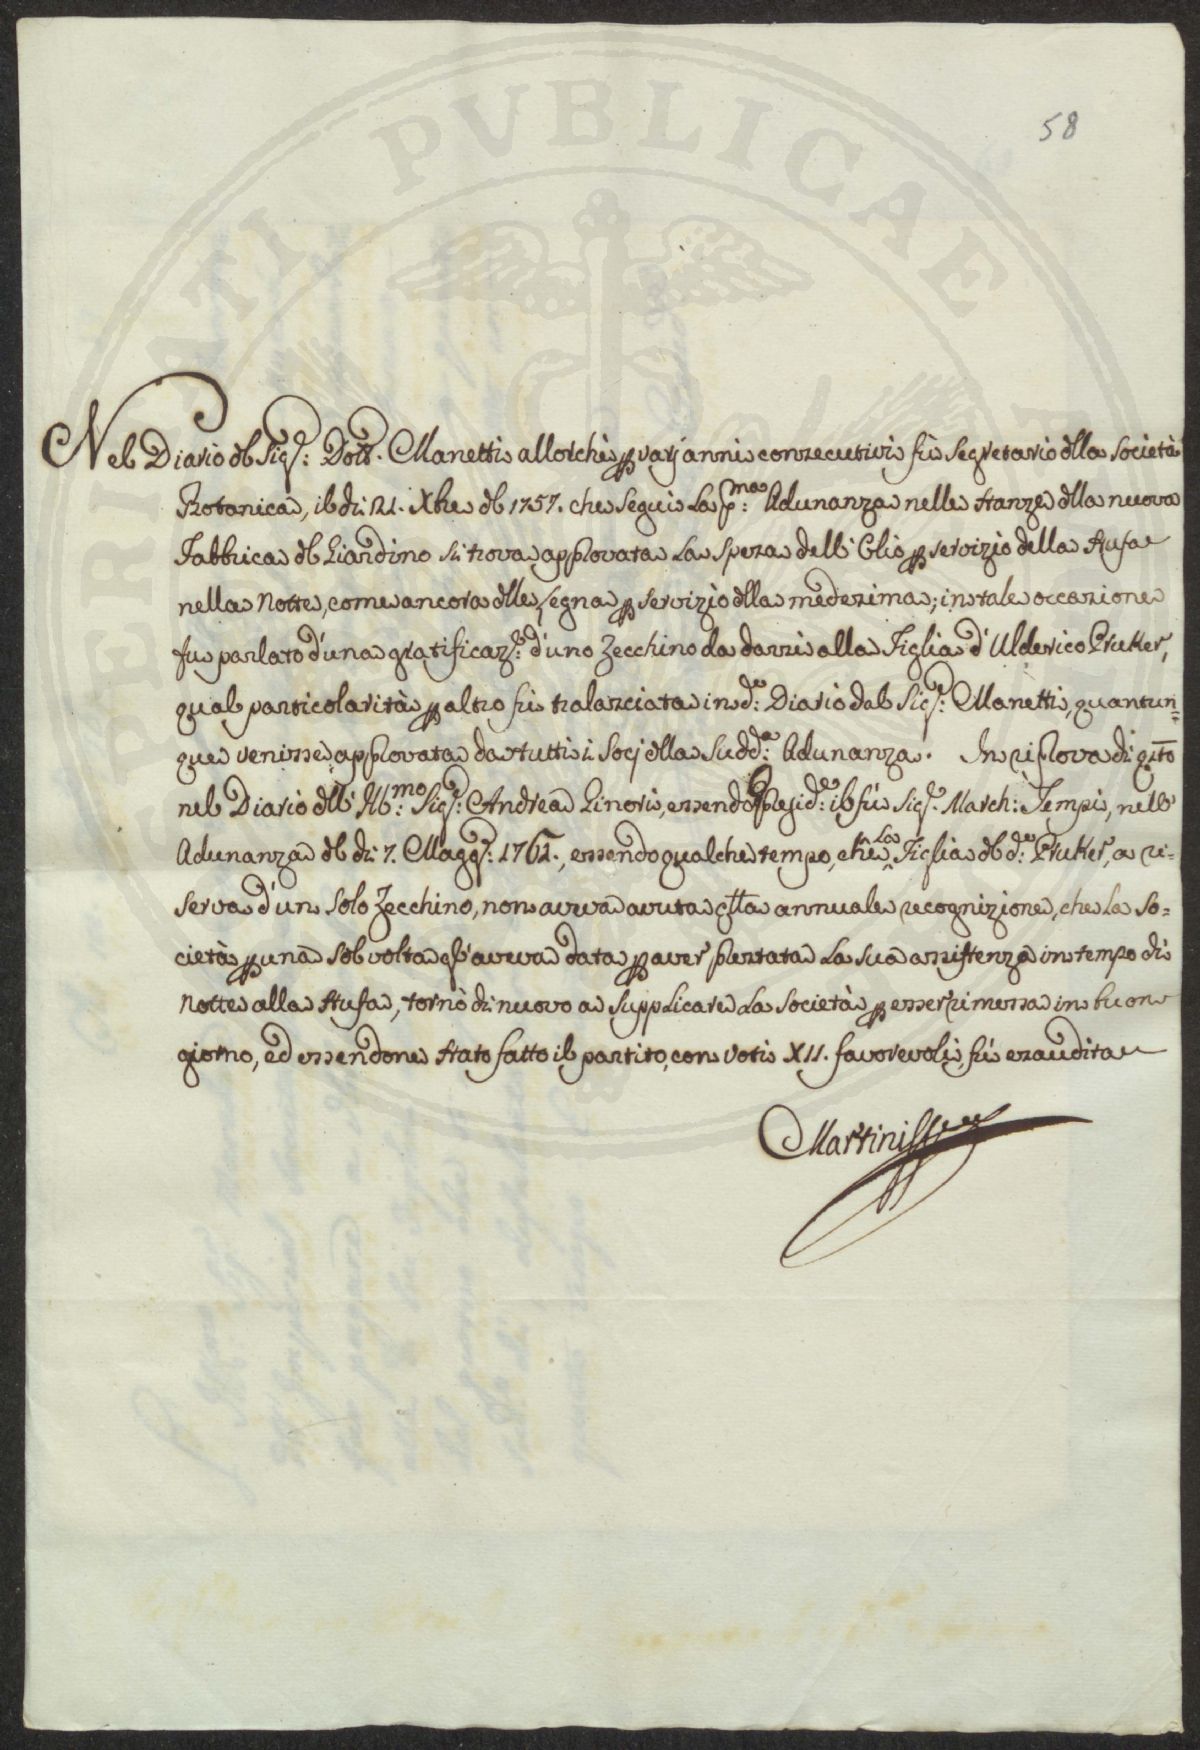 58
Nel Diario dl Sig.r: Dott.r Manetti allorchè p varj anni consecutivi fù Segretario dlla Società
Botanica, il dì: 21. Xbre dl 1757. che seguì la p:ma Adunanza nelle stanze dlla nuova
Fabbrica dl Giardino si trova approvata la spesa dell'Olio p servizio della stufa
nella Notte, come ancora dlle Legna p servizio dlla medesima; in tale occasione
fu parlato d'una gratificaz.e: d'uno Zecchino da darsi alla Figlia d'Ulderico Prucker,
qual particolarità p altro fù tralasciata in d:o Diario dal Sig.r: Manetti, quantun=
que venisse approvata da tutti i Socj dlla Sudd:a Adunanza. In riprova di q̃sto
nel Diario dll'Ill:mo Sig.r: Andrea Ginori, essendo Presid:e il fù Sig.r March: Tempi, nell'
Adunanza dl dì 7. Magg.o: 1761., essendo qualche tempo, che la Figlia dl d:o Prucker, a ri=
serva d'un solo Zecchino, non aveva avuta q̃lla annuale recognizione, che la So=
cietà p una sol volta gl'aveva data p aver prestata la sua assistenza in tempo di
notte alla stufa, tornò di nuovo a supplicare la Società p esser rimessa in buon
giorno, ed essendone stato fatto il partito, con voti XII. favorevoli, fù esaudita
Martini